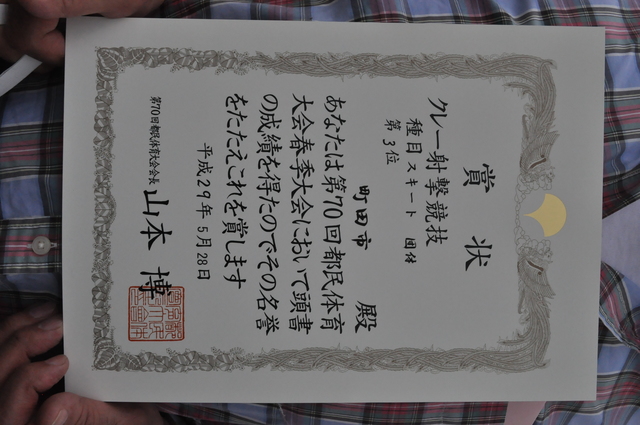 賞状
クレー射撃競技
種目 スキート 団体
第3位
町田市 殿
あなたは第70回都民体育
大会春季大会において頭書
の成績を得たのでその名誉
をたたえこれを賞します
平成29年5月28日
第70回都民体育大会会長 山本 博